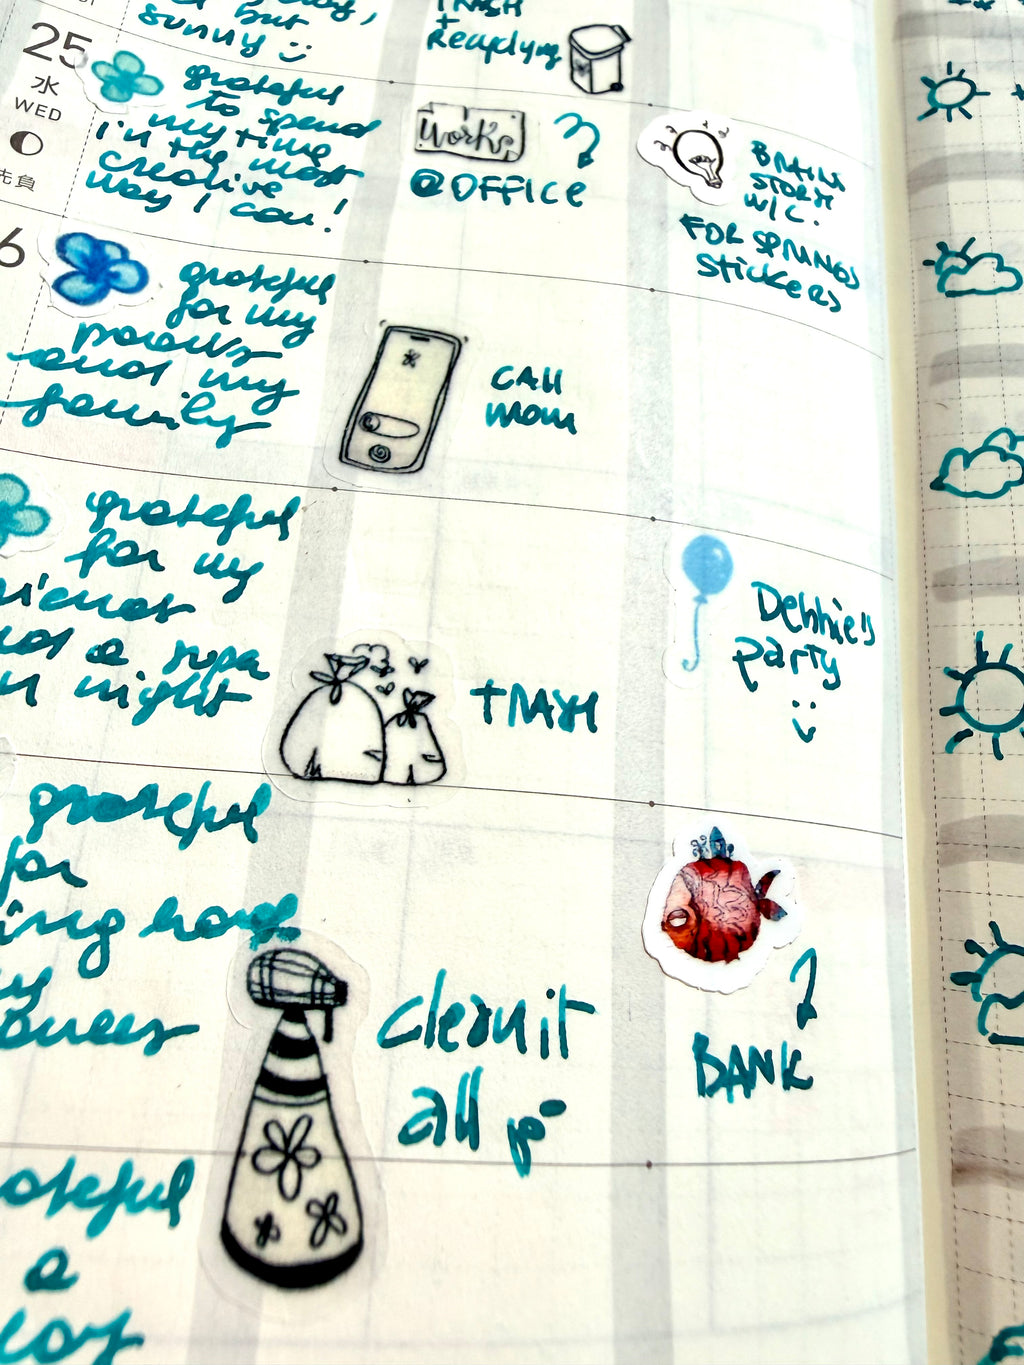 but
sunny
TRASH
+
Recycling
25
水
WED
先負
grateful
to spend
my time
in the most
creative
way I can!
Works
@ OFFICE
BRAIN
STORM
W/C.
FOR SPRING
stickers
6
grateful
for my
and my
family
CALL
mom
grateful
for my
night
TRASH
Debbie's
party
grateful
for
clean it
all up
BANK
a